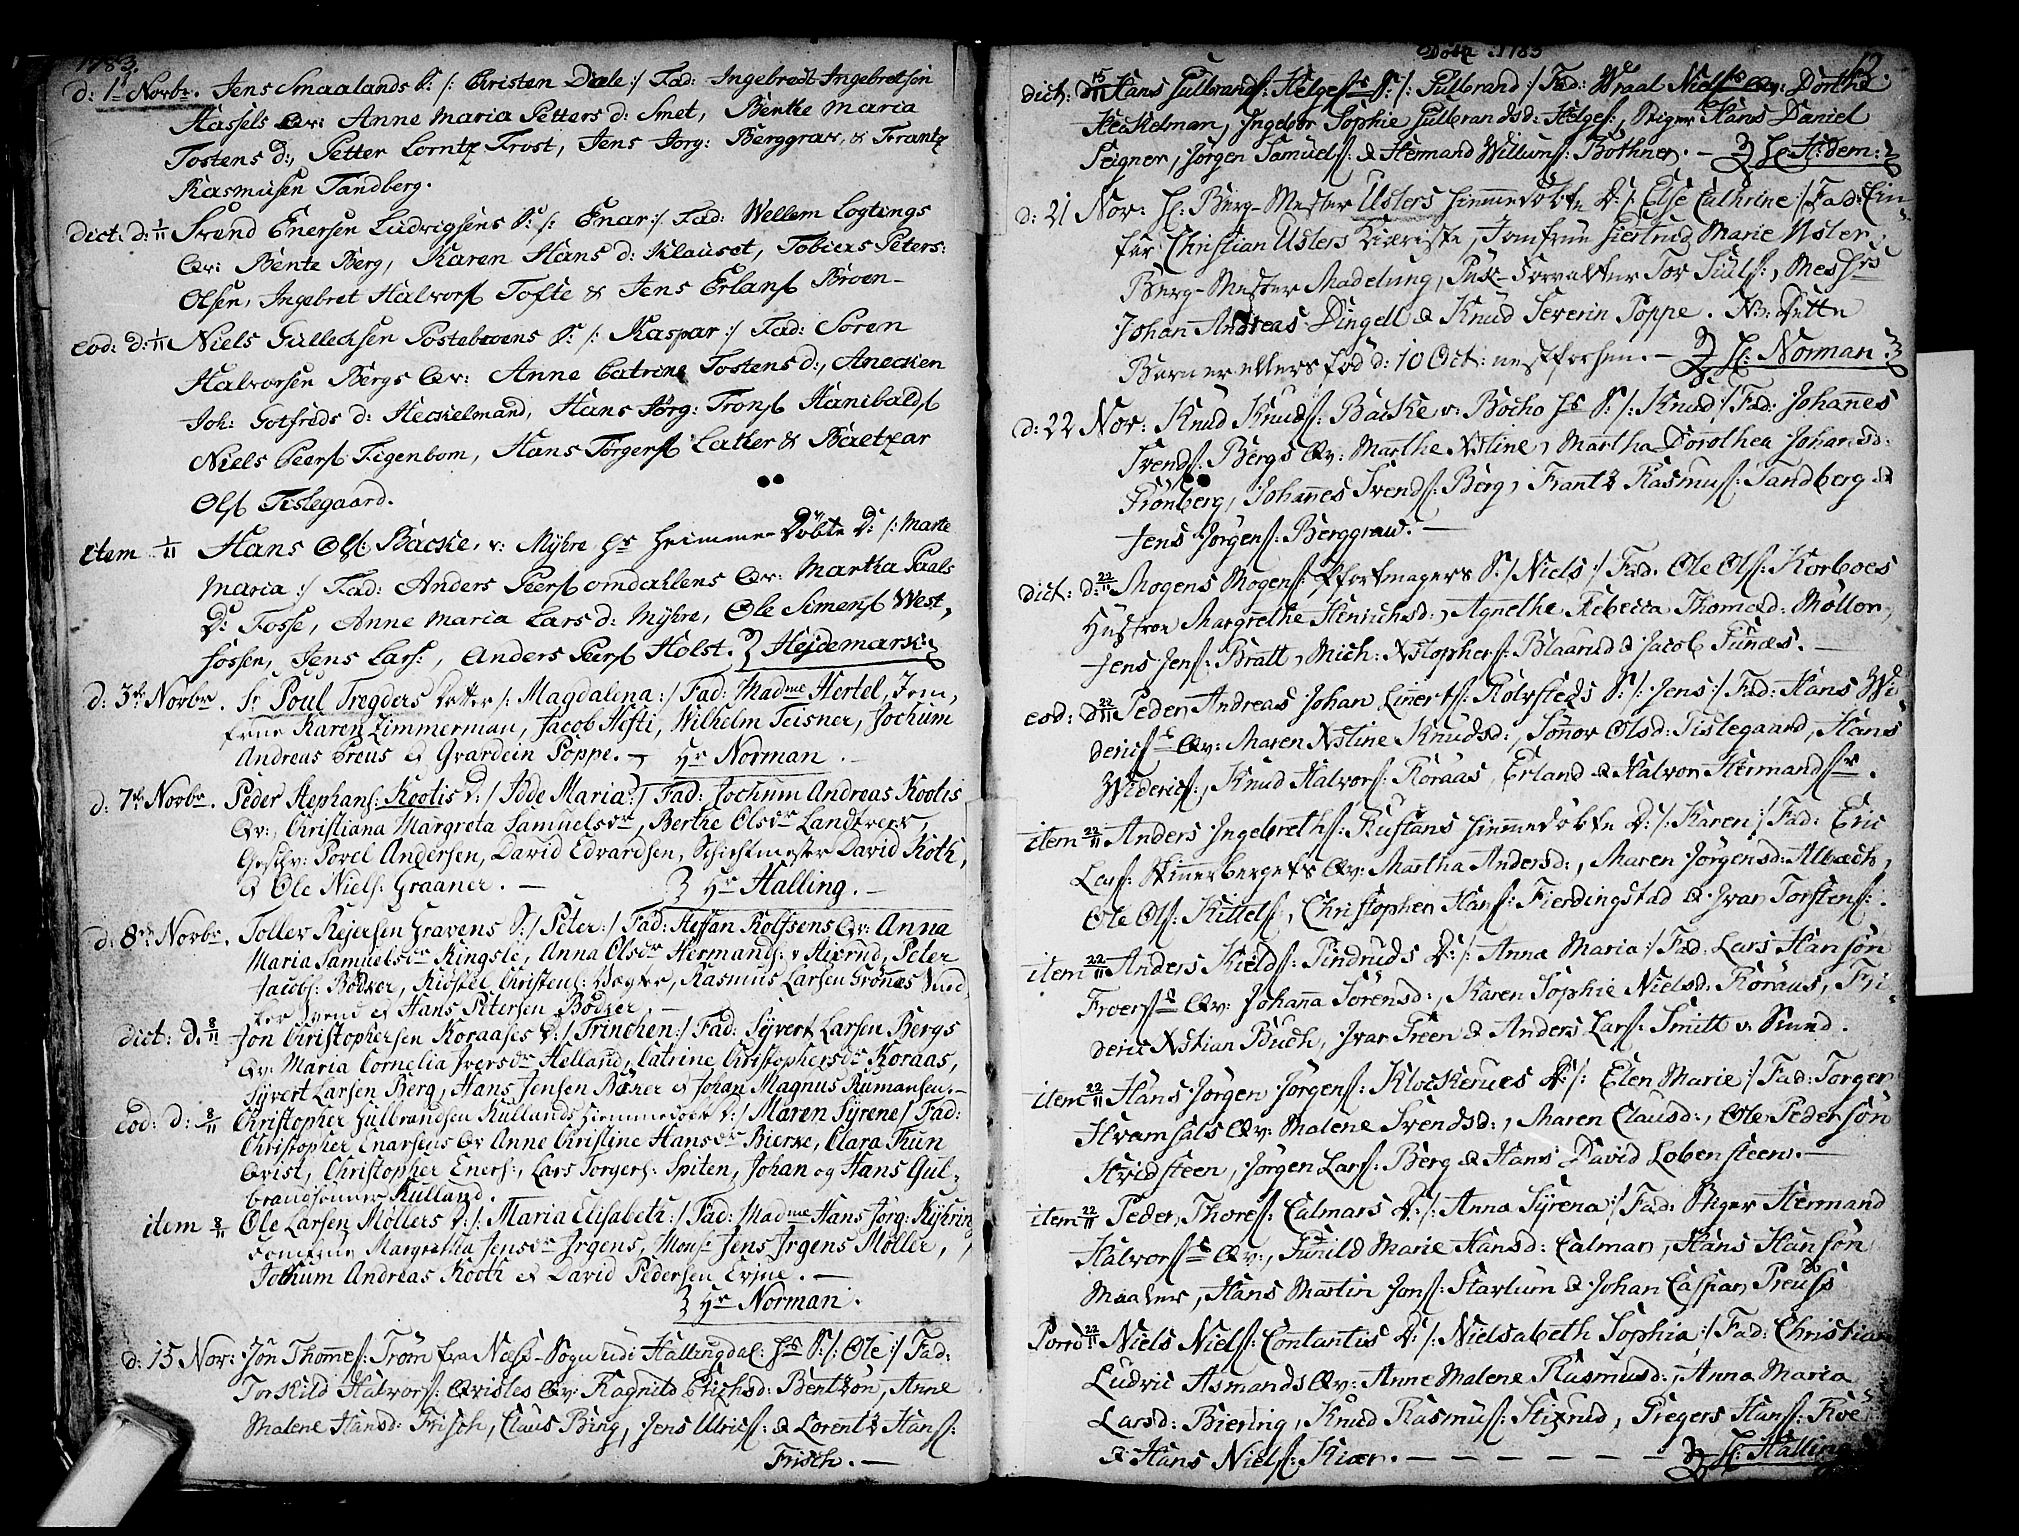 1783.
d: 1ste Novbr. Jens Smaalands S: /: Christen Dæle :/ Fad: Ingebredt Ingebretsøn
Hassels Qv: Anne Maria Petters d: Smet, Benthe Maria
Tostens D:, Petter Lorntz Frost, Jens Jørg: Berggrav, & Frantz
Rasmusen Tandberg.
dict: d: 1/11 Svend Enersen Ludvigsens S: /: Enar :/ Fad: Wellem Logtings
Qv: Bente Berg, Karen Hans d: Klauset, Tobias Peters:
Olsen, Ingebret Halvors: Tofte & Jens Erlans: Broen-
eod: d: 1/11 Niels Gullecksen Postebroens S: /: Kaspar :/ Fad: Soren
Halvorsen Bergs Qv: Anne Catrine Tostens d:, Anecken
Joh: Gotfreds d: Heckelmand, Hans Jørg: Trons: Hanibalds:
Niels Peers: Figenbom, Hans Törgers: Laker & Baltzar
Ols: Tislegaard.
item 1/11 Hans Ols: Backe, v: Myhre hs Hiemme-Döbte D: /: Marte
Maria :/ Fad: Anders Peers: omdahlens Qv: Martha Paals
D: Fosse, Anne Maria Lars d: Myhre, Ole Simens: West,
fossen, Jens Lars:, Anders Peers: Holst. Hejdemark.
d: 3de Novbr. Sr Poul Tregders Datter /: Magdalena :/ Fad: Madme Hertel, Jom,
frue Karen Zimmerman, Jacob Hefti, Wilhelm Teisner, Jochum
Andreas Preus og Gvardein Poppe. – Hr Norman.
d: 7de Novbr. Peder Stephans: Kootis D: /: Ide Maria :/ Fad: Jochum Andreas Kootis
Qv:, Christiana Margreta Samuelsdr, Berthe Olsdr Landtverk,
Geschv: Povel Andersen, David Edvardsen, Schichtmester David Koth,
& Ole Niels: Graaner. – Hr Halling. –
d: 8de Novbr. Toller Rejersen Gravens S: /: Peter :/ Fad: Steffan Rolfsens Qv: Anna
Maria Samuelsdr Kingsle, Anna Olsdr Hermands: v Hixrud, Peter
Jacobs: Bödker, Kiöstel Christens: Vegter, Rasmus Larsen Grönæs
og Hans Petersen Bödker –
dict: D. 8/11 Jon Christophersen Koraases D: /: Trinchen :/ Fad: Syvert Larsen Bergs
Qv: Maria Cornelia Iversdr Helland, Catrine Christophersdr Koraas,
Syvert Larsen Berg, Hans Jensen Becker og Johan Magnus Rumansen. –
eod: d: 8/11 Christopher Gulbrandsen Rullands hiemmedöbt D: /: Maren Syrene :/ Fad:
Christopher Enarsens Qv Anne Christine Hansdr Bierke, Clara Thun
Qvist, Christopher Eners:, Lars Torgers: Spiten, Johan og Hans Gul,
brandsönner Rulland.
item 8/11 Ole Larsen Möllers D: /: Maria Elisabeth :/ Fad: Madme Hans Jörg: Kyhrin
Jomfrue Margretha Jensdr Jrgens, Monsr Jens Jrgens Möller,
Jochum Andreas Kooth og David Pedersen Evjne. –
Hr Norman.
d: 15 Nov: Jön Thomes: Tröm fra Næss-Sogn udi Hallingdal hs S: /: Ole :/ Fad:
Torskild Halvors: Qvisles Qv: Ragnild Erichsd: Bentzön, Anne
Malene Hansd: Frisch, Claus Bing, Jens Ulrics: & Lorentz Hans:
Frisch. –
Döbt 1783
12.
dict: d 15/11 Hans Gulbrands: Helges:s S: /: Gulbrand :/ Fad: Wraal Niels:s Qv: Dorthe
Heckelman, Ingebor Sophie Gulbrandsd: Helges:, Stiger Hans Daniel
Seigner, Jörgen Samuels: & Hermand Willums: Böthner. – H: Hdem:
d: 21 Nov: H: Berg-Mester Usters hiemmedöbte D: /: Else Cathrine :/ Fad:
Christian Usters Kiæriste, Jomfrue Giertrud Marie Uster,
Berg-Mester Madelung, Tor Giuls:, Messrs
Johan Andreas Dingell & Knud Severin Poppe. NB: Dette
Barn er ellers föd d: 10 Oct: nestforhen. – H: Norman.
d: 22 Nov: Knud Knuds: Backe v: Bocho hs S: /: Knud :/ Fad: Johannes
Svends: Bergs Qv: Marthe Xstine, Martha Dorothea Johansd:
Krönberg, Johannes Svends: Berg, Frantz Rasmus: Tandberg &
Jens Jörgens: Berggraw. –
dict: d: 22/11 Mogens Mogens: Pfortmagers S: /: Niels :/ Fad: Ole Ols: Korboes
Hustroe Margrethe Henrichsd:, Agnethe Rebecca Thomesd: Möller,
Jens Jens: Bratt, Mich: Xstophers: Blaarud & Jacob Funæs. –
eod: d 22/11 Peder Andreas Johan Linerts: Rolvsteds S: /: Jens :/ Fad: Hans Wi-
derics:s Qv: Maren Xstine Knudsd:, Sönor Olsd: Tislegaard, Hans
Widerics:, Knud Halvors: Koraas, Erland & Halvor Hermands:r.
item 22/11 Anders Ingebreths: Rustans hiemmedöbte D: /: Karen :/ Fad: Eric
Lars: Skimerbergets Qv: Martha Andersd:, Maren Jörgensd: Albech,
Ole Ols: Kittels:, Christopher Hans: Fierdingstad & Ivar Torstens:.
item 22/11 Anders Kields: Pindruds D: /: Anna Maria :/ Fad: Lars Hansön
Froers:s Qv: Johanna Sörensd:, Karen Sophie Nielsd: Koraas, Fri-
deric Xstian Buch, Ivar Treen & Anders Lars: Smitt v: Smed.
item 22/11 Hans Jörgen Jörgens: Klockerues D: /: Elen Marie :/ Fad: Torger
Hvamsals Qv: Malene Svendsd:, Maren Clausd:, Ole Pedersön
Hvidsteen, Jörgen Lars: Berg & Hans David Lobensteen. –
item 22/11 Peder Thores: Calmars D: /: Anna Syrena :/ Fad: Stiger Hermand
Halvors:s Qv:, Gunild Marie Hansd: Calmar, Hans Hansön
Maaler, Hans Martin Jons: Starlum & Johan Caspar Preuss
22/11 Niels Niels: Contantius D: /: Nielsabeth Sophia :/ Fad: Christian
Ludvic Asmands Qv: Anne Malene Rasmusd:, Anna Maria
Larsd: Biering, Knud Rasmus: Hixrud, Gregers Hans:
& Hans Niels: Kiær. – – – – – – H: Halling